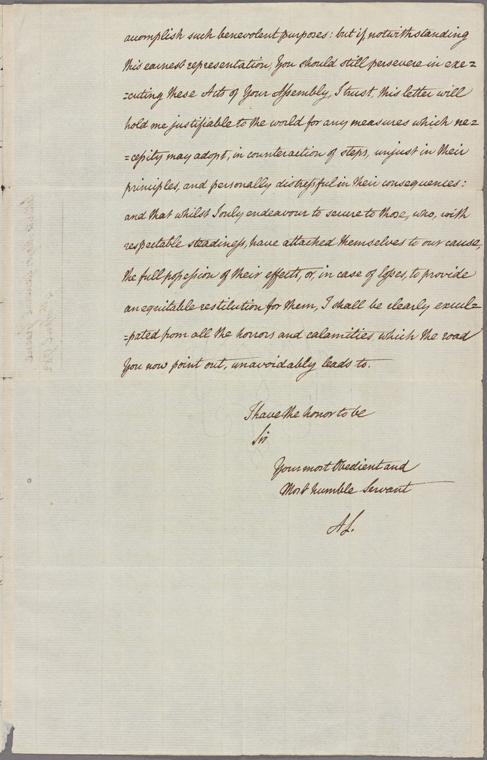 accomplish such benevolent purposes: but if notwithstanding
this earnest representation, You should still persevere in exe=
=cuting these Acts of Your Assembly, I trust, this letter will
hold me justifiable to the world for any measures which ne=
=cessity may adopt, in counteraction of steps, unjust in their
principles, and personally distressful in their consequences:
and that whilst I only endeavour to secure to those, who, with
respectable steadiness, have attached themselves to our cause,
the full possession of their effects, or, in case of losses, to provide
an equitable restitution for them, I shall be clearly excul=
=pated from all the horrors and calamities which the road
You now point out, unavoidably leads to.
I have the honor to be
Sir
Your most Obedient and
Most humble Servant
AL.